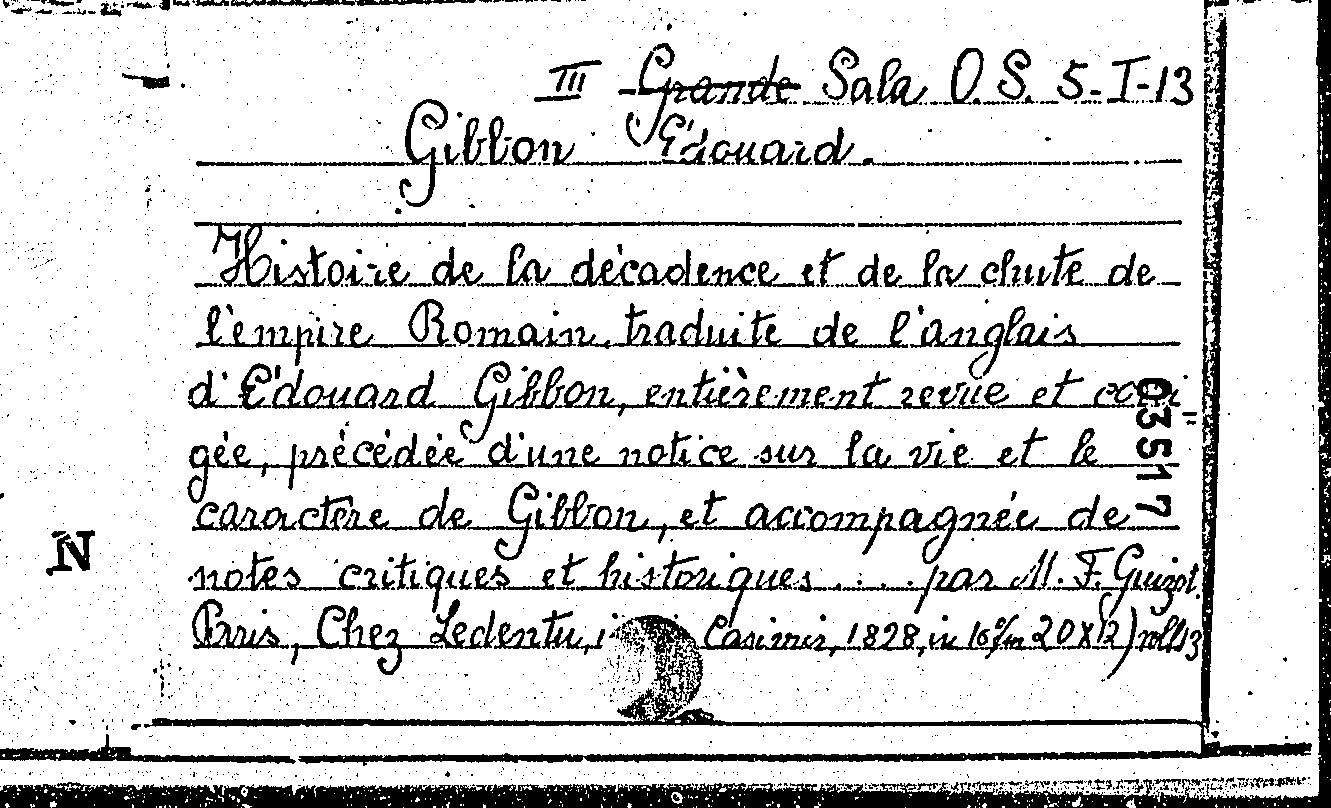 III Grande Sala O. S. 5-I-13
Gibbon Edouard.
Histoire de la décadence et de la chute de
l'empire Romain, traduite de l'anglais
d'Edouard Gibbon, entièrement revue et corri=
gée, précédée d'une notice sur la vie et le
caractère de Gibbon, et accompagnée de
notes critiques et historiques .... par M. F. Guizot.
Paris, Chez Ledentu, Casimir, 1828, in 16º/m 20x12) volls 13
03517
N